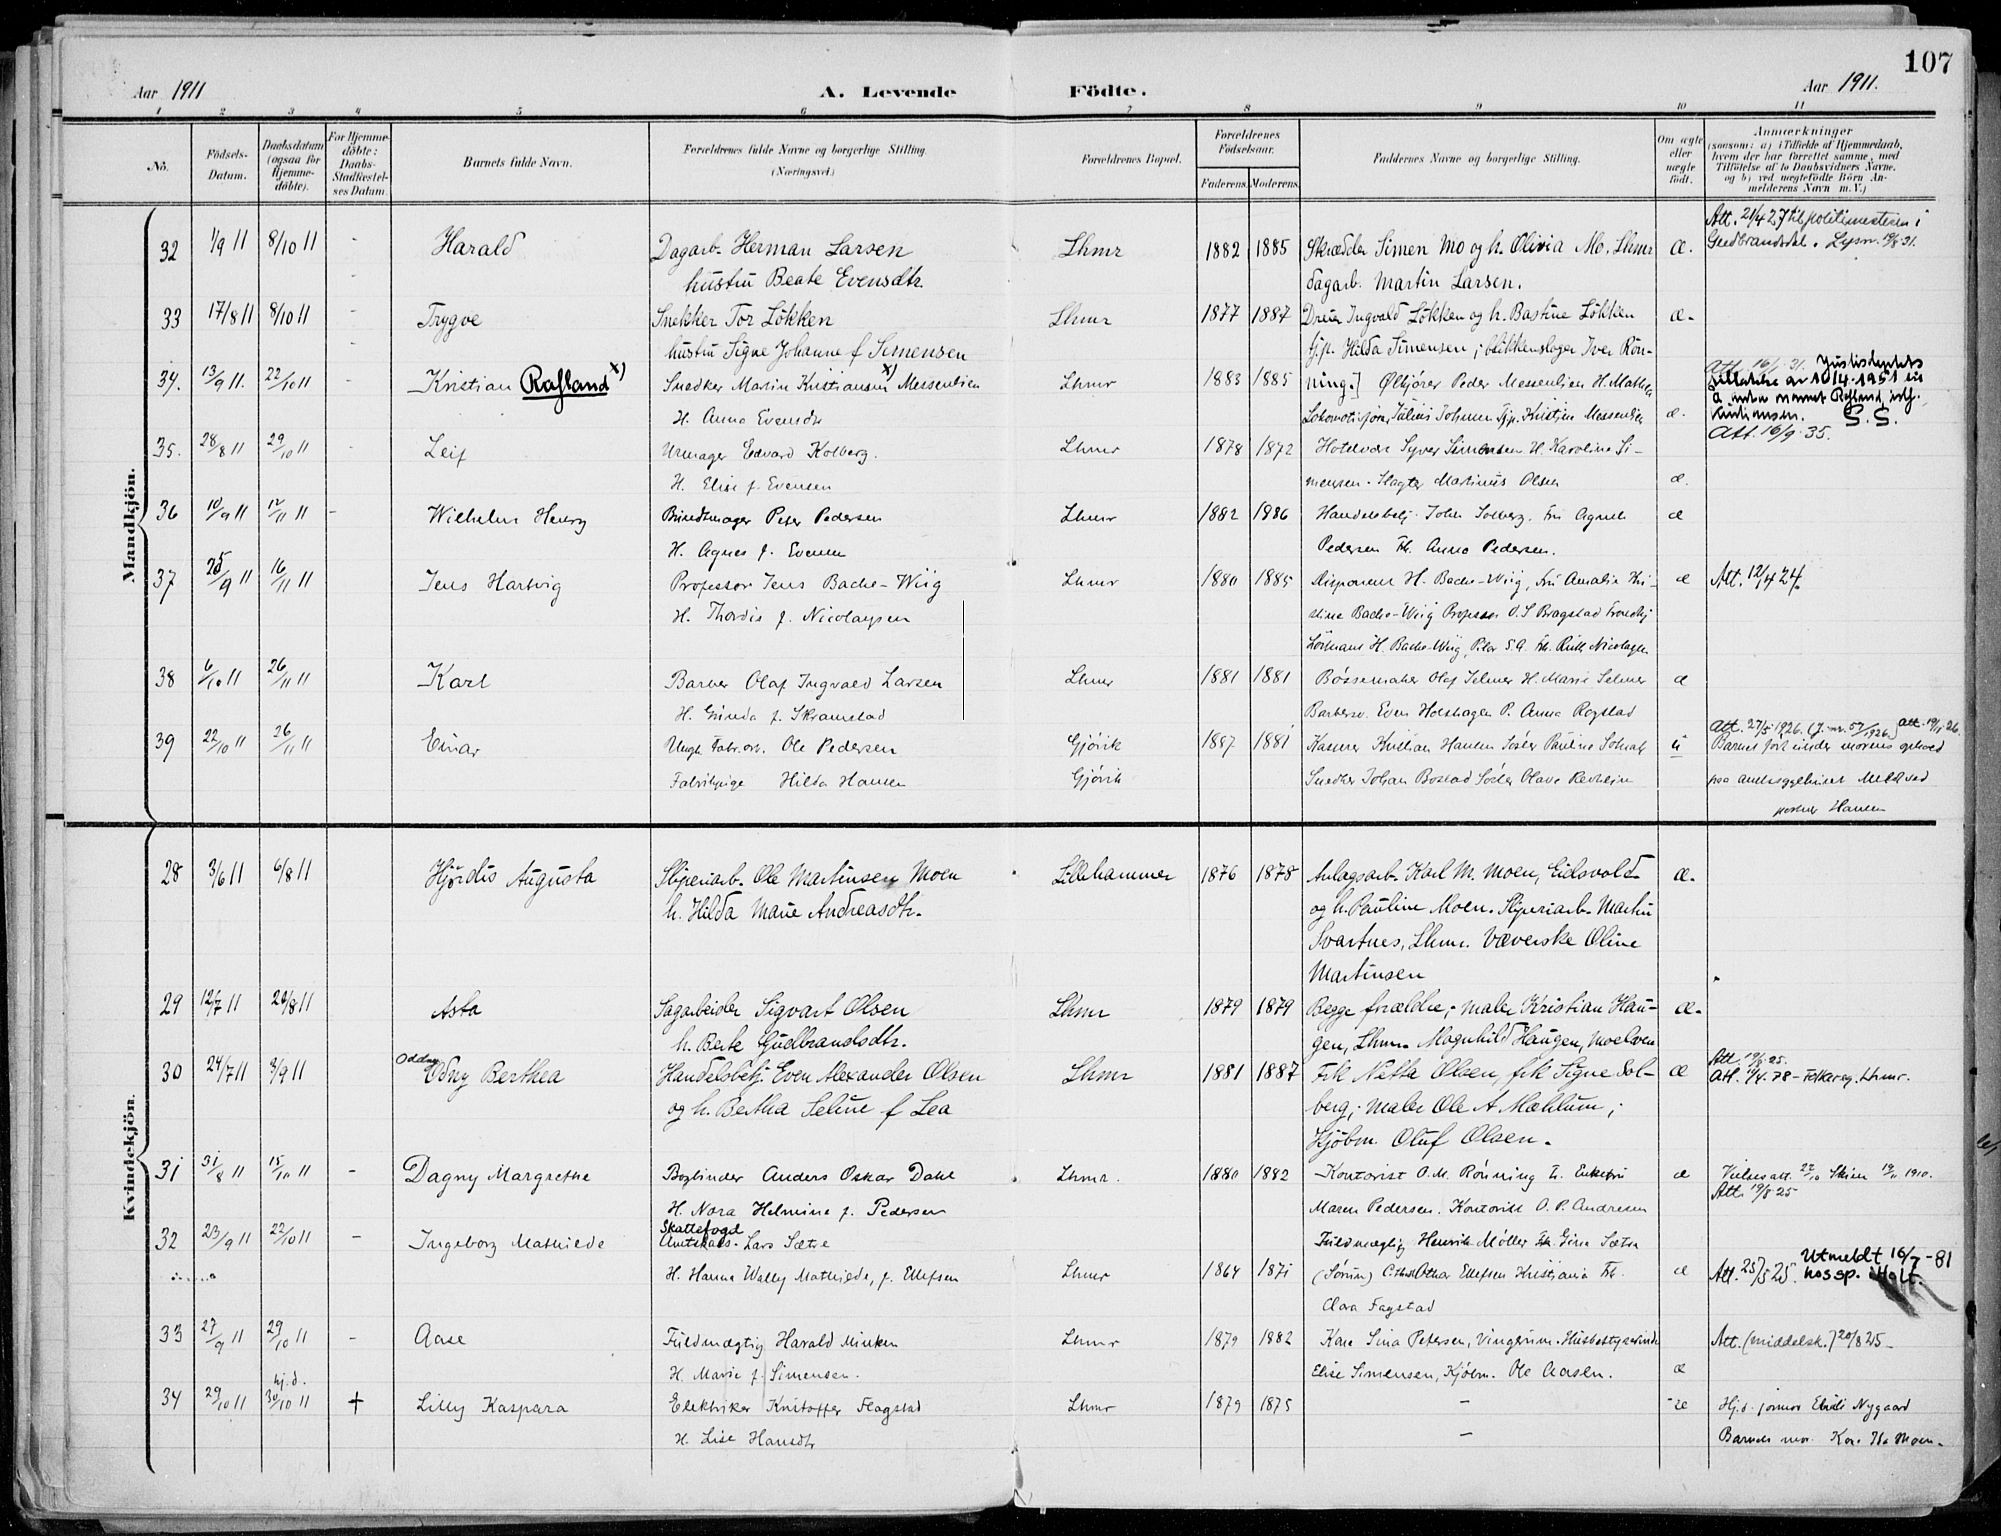 107
Aar 1911 A. Levende Födte. Aar 1911.
1 2 3 4 5 6 7 8 9 10 11
No. Födsels-Datum. Daabsdatum (ogsaa for Hjemme-döbte). For Hjemme-döbte: Daabs-Stadfæstel-ses Datum. Barnets fulde Navn. Forældrenes fulde Navne og borgerlige Stilling. (Næringsvei.) Forældrenes Bopæl. Forældrenes Födselsaar. Faderens. Moderens. Faddernes Navne og borgerlige Stilling. Om ægte eller uægte født. Anmærkninger (saasom: a) i Tilfælde af Hjemmedaab, hvem der har forrettet samme, med Tilföielse af to Daabsvidners Navne. og b) ved uægtefödte Börn An-melderens Navn m. V.)
Mandkjön.
Att. 21/4 27 til politimesteren i
32 1/9 11 8/10 11 - Harald Dagarb. Herman Larsen Lhmr 1882 1885 Skrædder Simen Mo og h. Olivia Mo. Lhmr æ. Gudbrandsdal.
hustru Beate Evensdtr. dagarb. Martin Larsen.
33 17/8 11 8/10 11 - Trygve Snekker Tor Lökken Lhmr 1877 1887 Dreier Ingvald Lökken og h. Bastine Lökken æ.
hustru Signe Johanne f Simensen Hilda Simensen; blikkenslager Iver Rön-
34. 13/9 11. 22/10 11 - Kristian Rafland x) Snedker Martin Kristiansen x) Messenlien Lhmr 1883 1885 ning.] Peder Messenlien H. Mathea Att. 16/1 31. Justisdeptets tillatelse av 10/4-1951 til å anta navnet Rafland, istf. Kristiansen. S.S.
H. Anna Evensdtr Julius Johnsen Kristine Messenlien æ.
35. 28/8 11 29/10 11 Leif Urmager Edvard Kolberg. Lhmr 1878 1872 Syver Simensen H. Karoline Si- Att. 16/9 35.
H. Elise f. Evensen mensen. Slagter Martinus Olsen æ.
36 10/9 11 12/11 11 - Wilhelm Henry Bundtmager Peter Pedersen Lhmr 1882 1886 Handelsbetj. John Solberg. Fru Agnete æ
H. Agnes f. Evensen Pedersen Frk. Anna Pedersen.
37 25/9 11 16/11 11 Jens Hartvig Professor Jens Bache-Wiig Lhmr 1880 1885 Disponent H. Bache-Wiig, fru Amalie Kri- æ Att. 12/4 24.
H. Thordis f. Nicolaysen stine Bache-Wiig Professor O. S Bragstad Trondhj
H. Bache-Wiig, Frk. Ruth Nicolaysen
38 6/10 11 26/11 11 Karl Barber Olaf Ingvald Larsen Lhmr 1881 1881 Bøssemaker Olaf Selmer H. Marie Selmer æ
H. Gunda f. Skramstad Barbersv. Even Holshagen P. Anna Rogstad
39 22/10 11 26/11 11 Einar Ungk. Fabr.arb. Ole Pedersen Gjövik 1887 1881 Kristian Hansen Pauline u Att. 27/5 1926. (J. nr. 57/1926.) Att. 19/11 26. Barnet født under morens ophold
Fabrikpige Hilda Hansen Gjövik Snedker Johan Bostad Olave paa
Hansen
Kvindekjön.
28 3/6 11 6/8 11 Hjørdis Augusta Sliperiarb. Ole Martinsen Moen Lillehammer 1876 1878 Anlægsarb. Karl M. Moen, Eidsvold æ.
h. Hilda Marie Andreasdtr. og h. Pauline Moen. Sliperiarb. Martin
Svartnes, Lhmr. Væverske Oline
Martinsen
29 12/7 11 20/8 11 Asta Sagarbeider Sigvart Olsen Lhmr 1879 1879 Begge forældre; maler Kristian Hau- æ.
h. Berte Gudbrandsdtr. gen, Lhmr. Magnhild Haugen, Moelven
30 24/7 11 3/9 11 Oddny Odny Berthea Handelsbetj. Even Alexander Olsen Lhmr 1881 1887 Frk Netta Olsen, frk Signe Sol- æ Att. 19/6 25. Att. 19/4.78 - Folkereg. Lhmr.
og h. Bertha Seline f Lea berg; maler Ole A. Mæhlum;
Kjöbm. Oluf Olsen.
31 31/8 11 15/10 11 - Dagny Margrethe Bogbinder Anders Oskar Dahl Lhmr. 1880 1882 Kontorist O.M. Rönning h. Enkefru æ Vielsesatt. 22/10 Skien 19/11 1910.
H. Nora Helmine f. Pedersen Maren Pedersen. Kontorist O. P. Andresen Att. 19/8 25
32 23/9 11 22/10 11 - Ingeborg Mathilde Skattefogd Lars Sætre Fuldmægtig Henrik Møller Frk. Gina Sætre
H. Hanna Wally Mathilde, f. Ellefsen Lhmr 1864 1871 Othar Ellefsen Kristiania Fr. æ Att. 25/5 25. Utmeldt 16/7-81 hos sp. i Holt.
Clara Fagstad
33 27/9 11 29/10 11 - Aase Fuldmægtig Harald Minken Lhmr 1879 1882 Kone Sina Petersen, Vingerum. Husbestyrerinde Att. (middelsk.) 20/8 25-
H. Marie f. Simensen. Elise Simensen, Kjöbm. Ole Aasen. æ
34 29/10 11 hj.d. 30/10 11 + Lilly Kaspara Elektriker Kristoffer Flagstad Lhmr 1879 1875 - æ Hj.d. jormor Nygaard
H. Lise Hansdtr - Barnets mor. Moen.